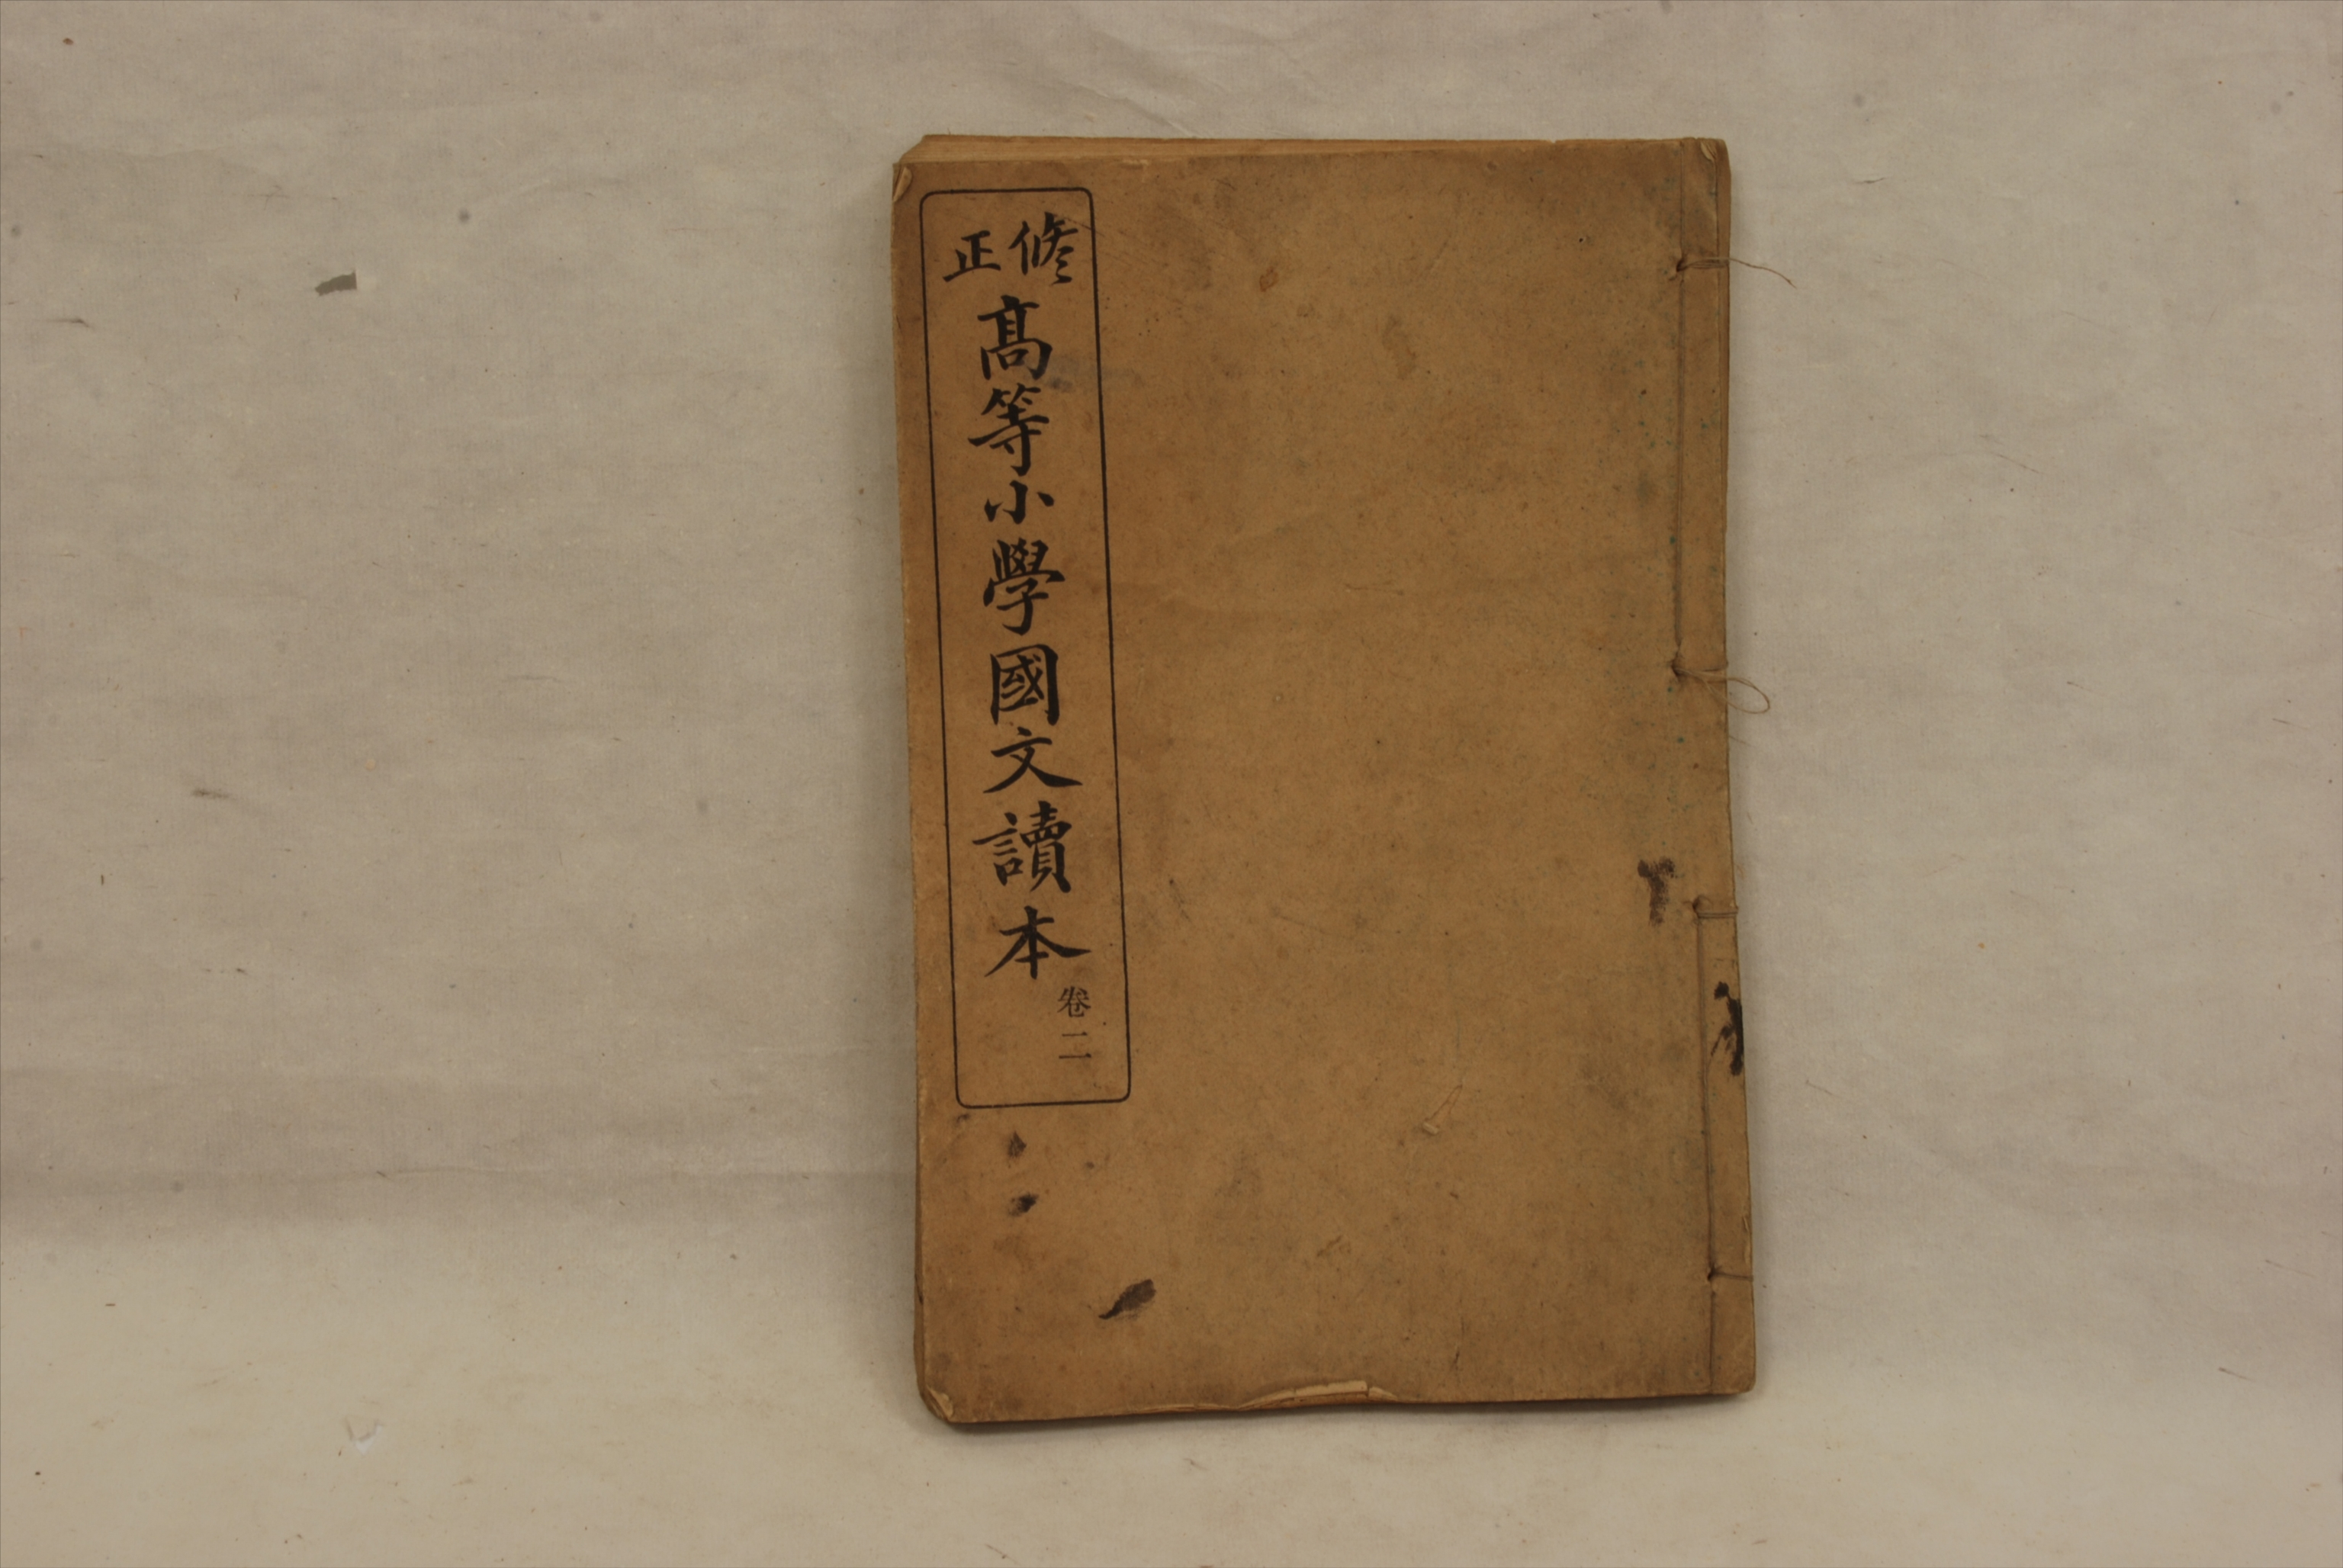 修正
高等小學國文讀本
卷二